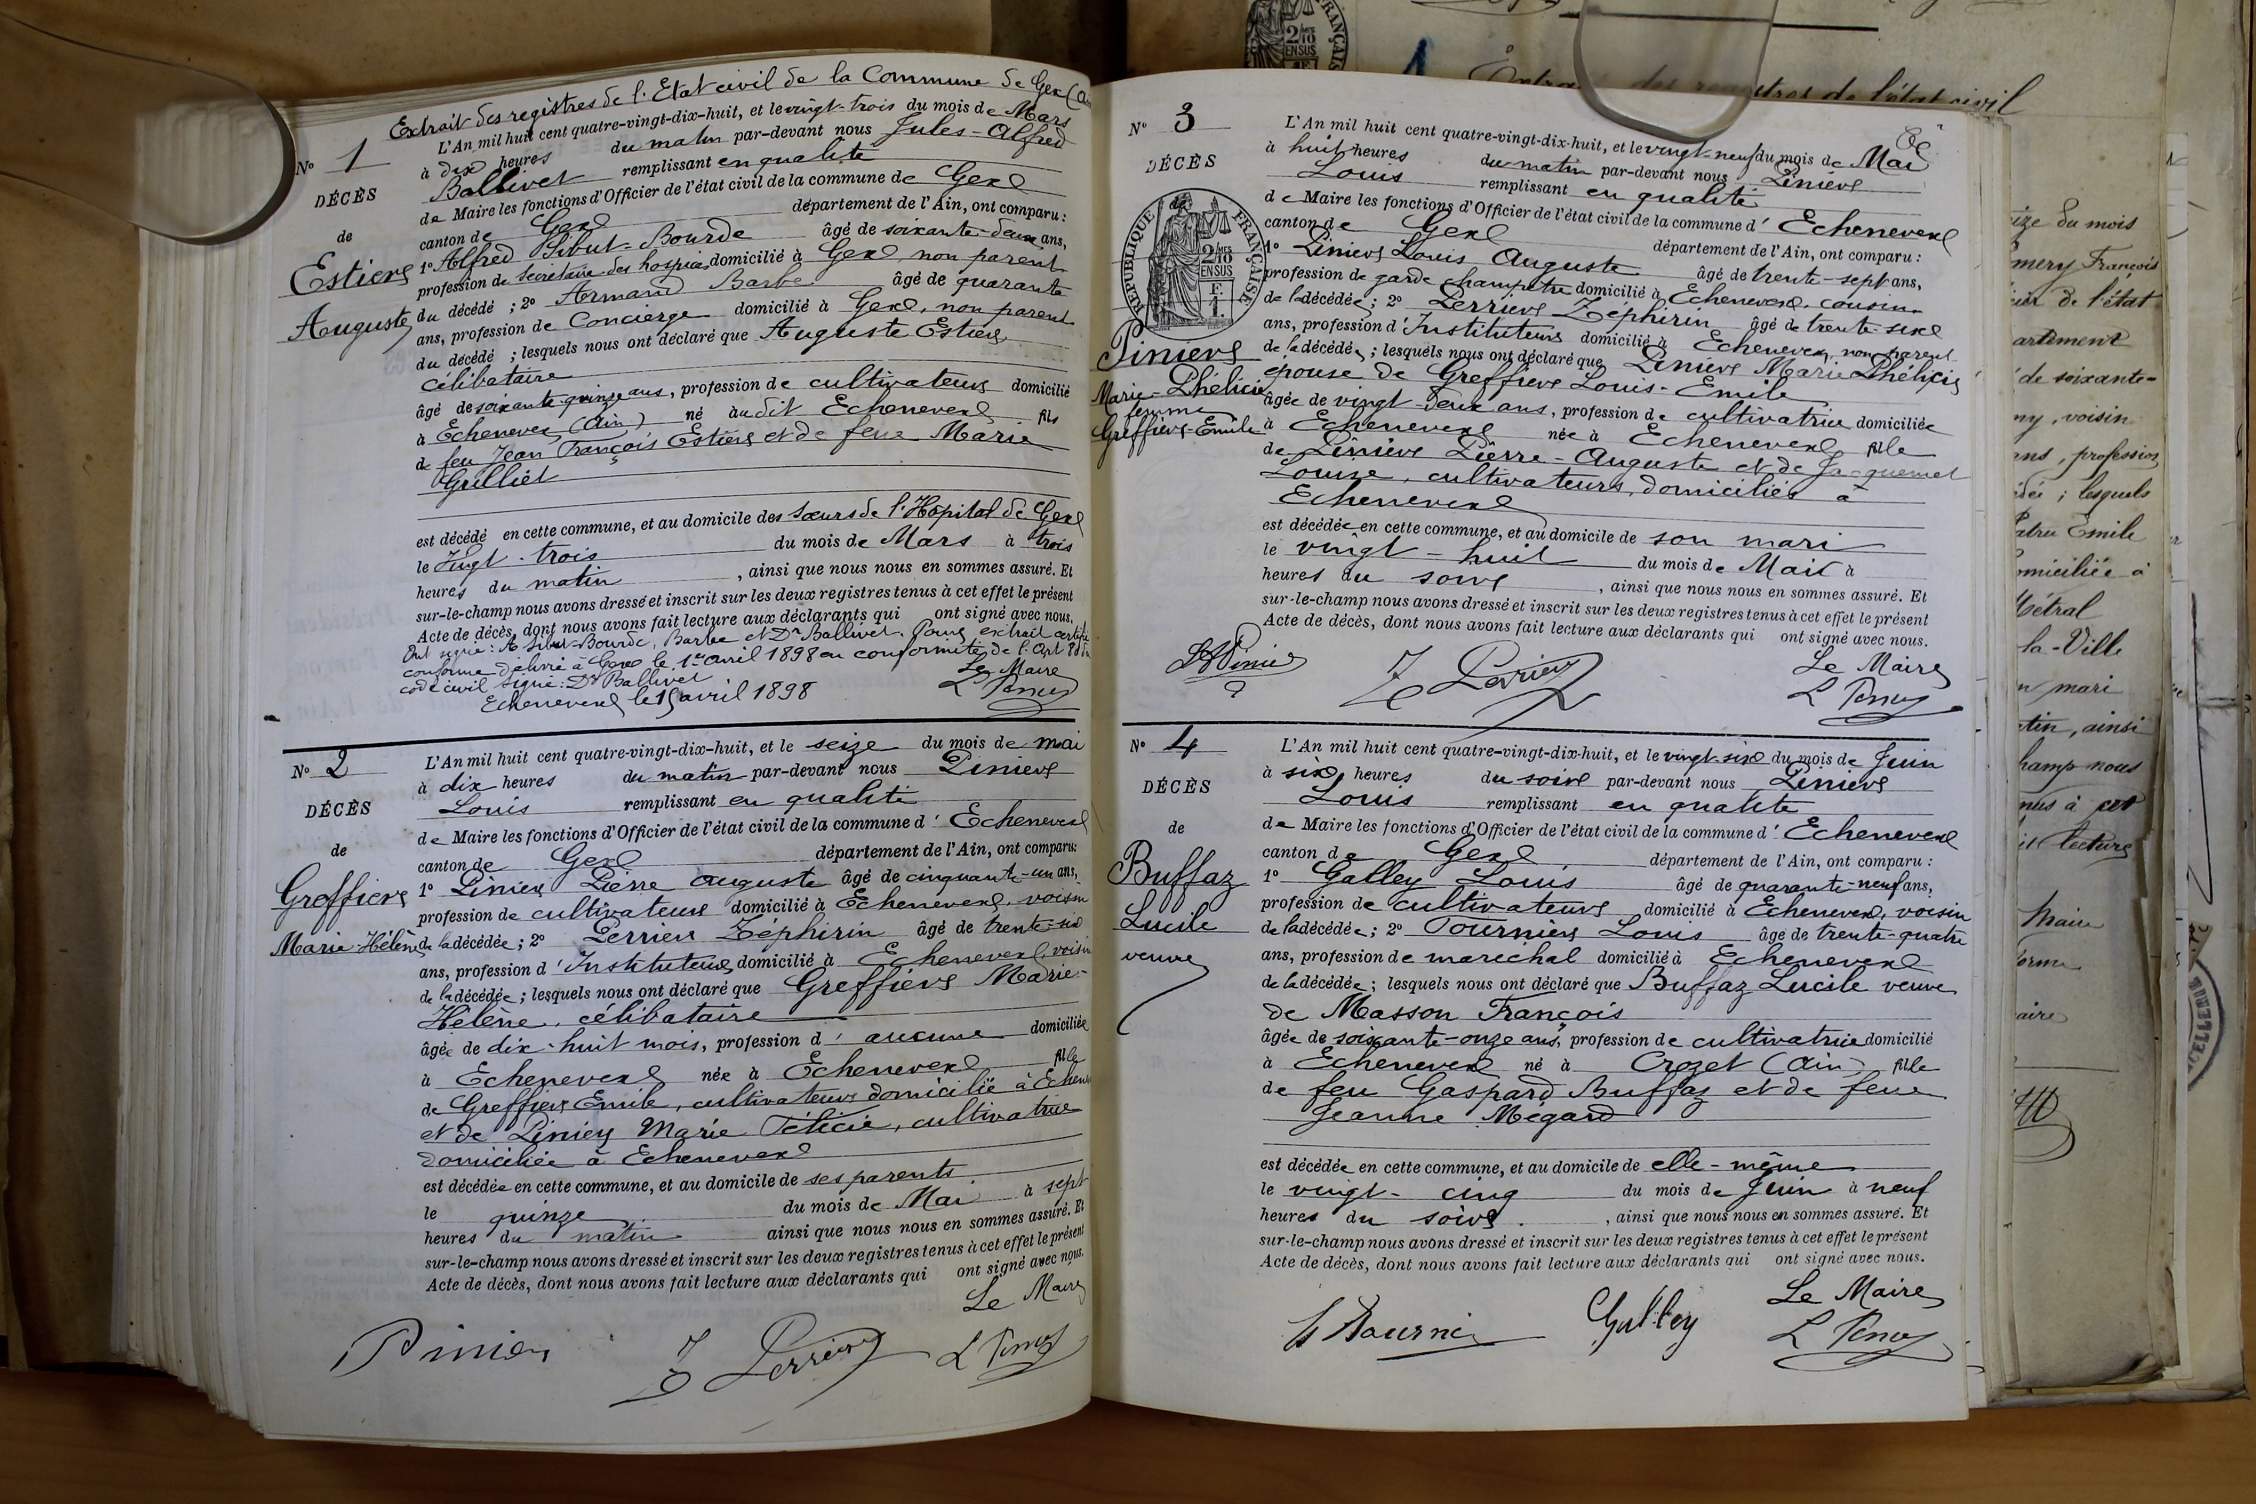 Extrait des registres de l'Etat civil de la Commune de Gex (Ain
N° 1
DÉCÈS
de
Estier
Auguste
L'An mil huit cent quatre-vingt-dix-huit, et le vingt-trois du mois de Mars
à dix heures du matin par-devant nous Jules-Alfred
Ballivet remplissant en qualité
de Maire les fonctions d'Officier de l'état civil de la commune de Gex
canton de Gex département de l'Ain, ont comparu :
1° Alfred Sibut-Bourde âgé de soixante-deux ans,
profession de secrétaire des hospices domicilié à Gex, non parent
du décédé ; 2° Armand Barbe âgé de quarante
ans, profession de Concierge domicilié à Gex, non parent
du décédé ; lesquels nous ont déclaré que Auguste Estier
célibataire
âgé de soixante-quinze ans, profession de cultivateur domicilié
à Echenevex (Ain) né audit Echenevex fils
de feu Jean François Estier et de feue Marie
Grilliet
est décédé en cette commune, et au domicile des sœurs de l'Hôpital de Gex
le Vingt-trois du mois de Mars à trois
heures du matin, ainsi que nous nous en sommes assuré. Et
sur-le-champ nous avons dressé et inscrit sur les deux registres tenus à cet effet le présent
Acte de décès, dont nous avons fait lecture aux déclarants qui ont signé avec nous.
Ont signé : A Sibut-Bourde, Barbe et Dr Ballivet. Pour extrait certifié
conforme délivré à Gex le 1er avril 1898 en conformité de l'art 80 du
code civil signé : Dr Ballivet
Echenevex le 15 avril 1898
Le Maire
N° 2
DÉCÈS
de
Greffier
Marie-Hélène
L'An mil huit cent quatre-vingt-dix-huit, et le seize du mois de mai
à dix heures du matin par-devant nous Pinier
Louis remplissant en qualité
de Maire les fonctions d'Officier de l'état civil de la commune d'Echenevex
canton de Gex département de l'Ain, ont comparu :
1° Pinier Pierre Auguste âgé de cinquante-un ans,
profession de cultivateur domicilié à Echenevex, voisin
de la décédée ; 2° Perrier Zéphirin âgé de trente-six
ans, profession d'Instituteur domicilié à Echenevex, voisin
de la décédée ; lesquels nous ont déclaré que Greffier Marie-
Hélène, célibataire
âgée de dix-huit mois, profession d'aucune domiciliée
à Echenevex née à Echenevex fille
de Greffier Emile, cultivateur domicilié à Echenevex
et de Pinier Marie Félicie, cultivatrice
domiciliée à Echenevex
est décédée en cette commune, et au domicile de ses parents
le quinze du mois de Mai à sept
heures du matin ainsi que nous nous en sommes assuré. Et
sur-le-champ nous avons dressé et inscrit sur les deux registres tenus à cet effet le présent
Acte de décès, dont nous avons fait lecture aux déclarants qui ont signé avec nous.
Le Maire
Pinier Z Perrier L Pinier
N° 3
DÉCÈS
RÉPUBLIQUE FRANÇAISE
2/10
EN SUS
Pinier
Marie-Phélicie
femme
Greffier-Emile
L'An mil huit cent quatre-vingt-dix-huit, et le vingt-neuf du mois de Mai
à huit heures du matin par-devant nous Pinier
Louis remplissant en qualité
de Maire les fonctions d'Officier de l'état civil de la commune d'Echenevex
canton de Gex département de l'Ain, ont comparu :
1° Pinier Louis Auguste âgé de trente-sept ans,
profession de garde champêtre domicilié à Echenevex, cousin
de la décédée ; 2° Perrier Zéphirin âgé de trente-six
ans, profession d'Instituteur domicilié à Echenevex, non parent
de la décédée ; lesquels nous ont déclaré que Pinier Marie Phélicie
épouse de Greffier Louis-Emile
âgée de vingt-deux ans, profession de cultivatrice domiciliée
à Echenevex née à Echenevex fille
de Pinier Pierre-Auguste et de Jacquemet
Louise, cultivateurs, domiciliés à
Echenevex
est décédée en cette commune, et au domicile de son mari
le vingt-huit du mois de Mai à
heures du soir, ainsi que nous nous en sommes assuré. Et
sur-le-champ nous avons dressé et inscrit sur les deux registres tenus à cet effet le présent
Acte de décès, dont nous avons fait lecture aux déclarants qui ont signé avec nous.
Le Maire
Z Perrier L Pinier
N° 4
DÉCÈS
de
Buffaz
Lucile
veuve
L'An mil huit cent quatre-vingt-dix-huit, et le vingt-six du mois de Juin
à six heures du soir par-devant nous Pinier
Louis remplissant en qualité
de Maire les fonctions d'Officier de l'état civil de la commune d'Echenevex
canton de Gex département de l'Ain, ont comparu :
1° Galley Louis âgé de quarante-neuf ans,
profession de cultivateur domicilié à Echenevex, voisin
de la décédée ; 2° Tournier Louis âgé de trente-quatre
ans, profession de maréchal domicilié à Echenevex
de la décédée ; lesquels nous ont déclaré que Buffaz Lucile veuve
de Masson François
âgée de soixante-onze ans, profession de cultivatrice domicilié
à Echenevex né à Crozet (Ain) fille
de feu Gaspard Buffaz et de feue
Jeanne Mégard
est décédée en cette commune, et au domicile de elle-même
le vingt-cinq du mois de Juin à neuf
heures du soir, ainsi que nous nous en sommes assuré. Et
sur-le-champ nous avons dressé et inscrit sur les deux registres tenus à cet effet le présent
Acte de décès, dont nous avons fait lecture aux déclarants qui ont signé avec nous.
Le Maire
Tournier Galley L Pinier
des registres de l'état civil
du mois
François
de l'état
de soixante-
voisin
profession
; lesquels
Emile
domiciliée à
Métral
la-Ville
mari
ainsi
nous
à cet
lecture
Maire